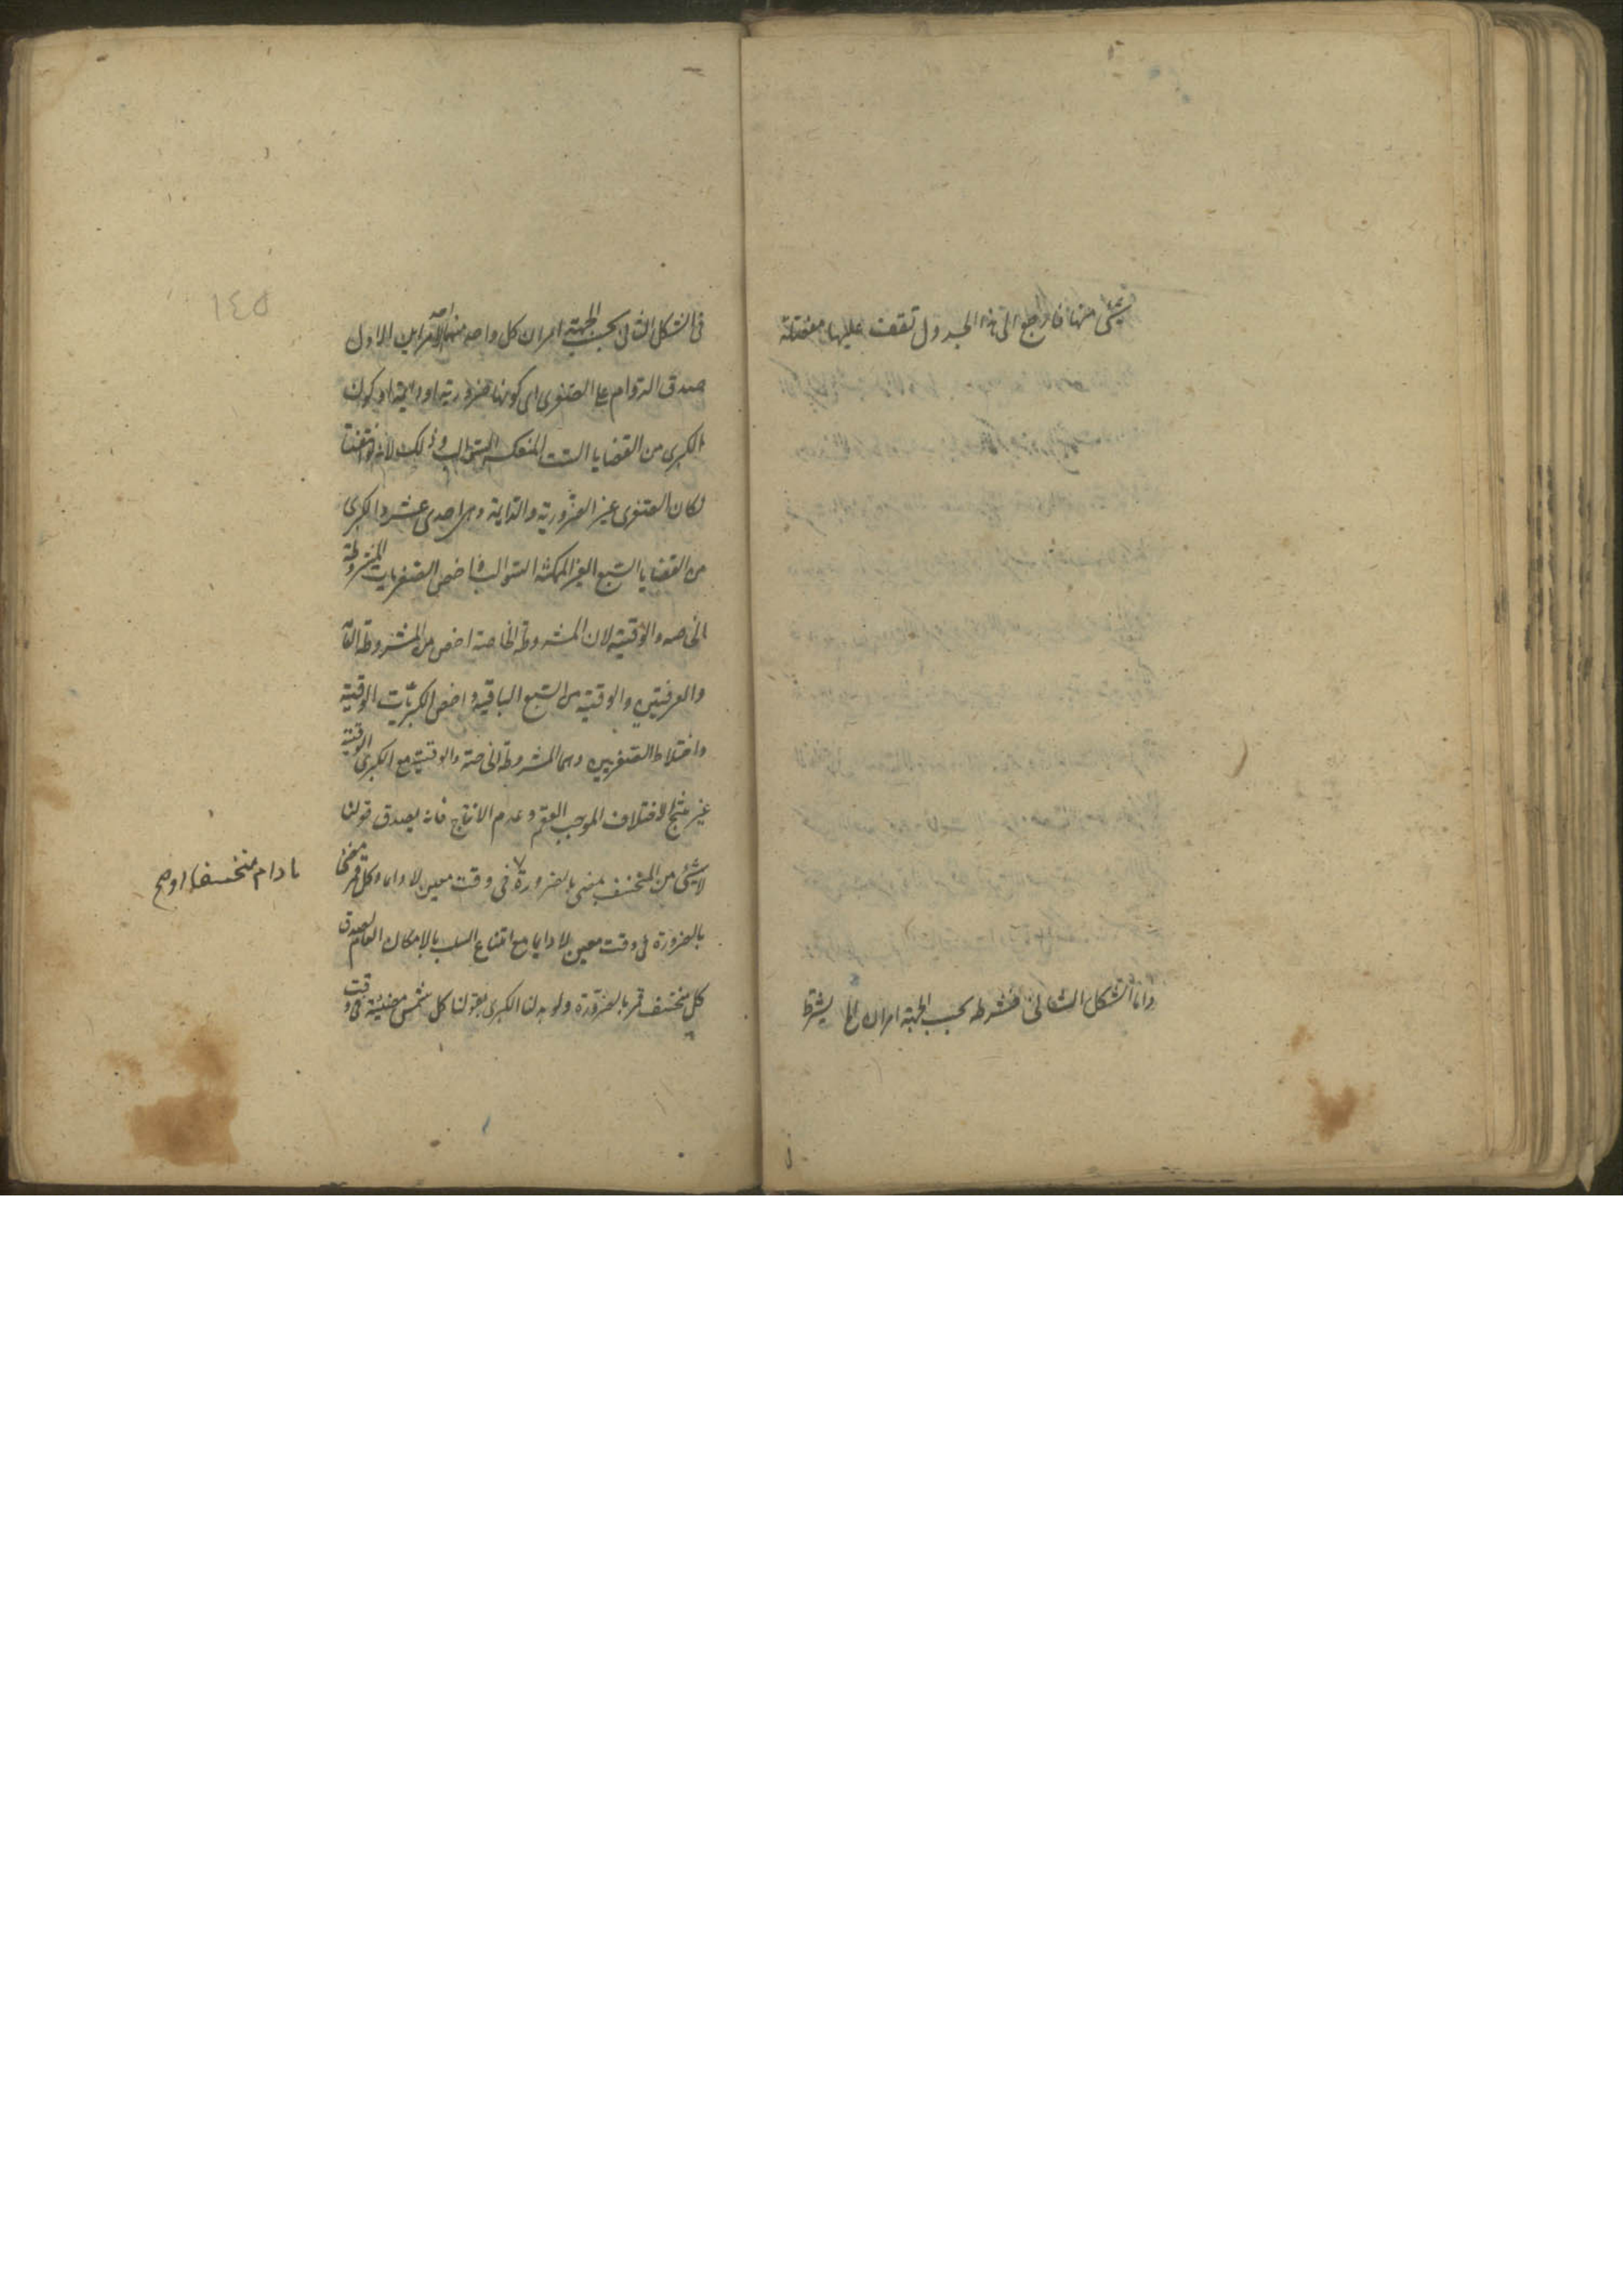 شئ منها فارجع الى هذا الجدول تقف عليها مفصلة
واما الشكل الثانى فشرطه بحسب الجهة امران الخ يشترط
١٤٥
فى الشكل الثانى بحسب الجهة امران كل واحد منهما احد الامرين الاول
صدق الدوام على الصغرى اى كونها ضرورية او دائمة او كون
الكبرى من القضايا الست المنعكسة السوالب وذلك لانه لو انتفتا
لكان الصغرى غير الضرورية والدايمة وهى احدى عشر والكبرى
من القضايا السبع الغير المنعكسة السوالب واخص الصغريات المشروطة
الخاصه والوقتية لان المشروطة الخاصة اخص من المشروطة العامة
والعرفيتين والوقتية من السبع الباقية واخص الكبريات الوقتية
واختلاط الصغريين وهما المشروطة الخاصة والوقتية مع الكبرى الوقتية
غير منتج للاختلاف الموجب للعقم وعدم الانتاج فانه يصدق قولنا
لا شئ من المنخسف بمضى بالضرورة فى وقت معين لا دايما وكل قمر مضئ
مادام منخسفا او صح
بالضرورة فى وقت معين لا دايما مع امتناع السلب بالامكان العام لصدق
كل منخسف قمر بالضرورة ولو بدلنا الكبرى بقولنا كل شمس مضيئة فى وقت